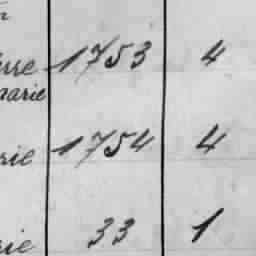 rre 1753 4
marie
rie 1754 4
rie 33 1